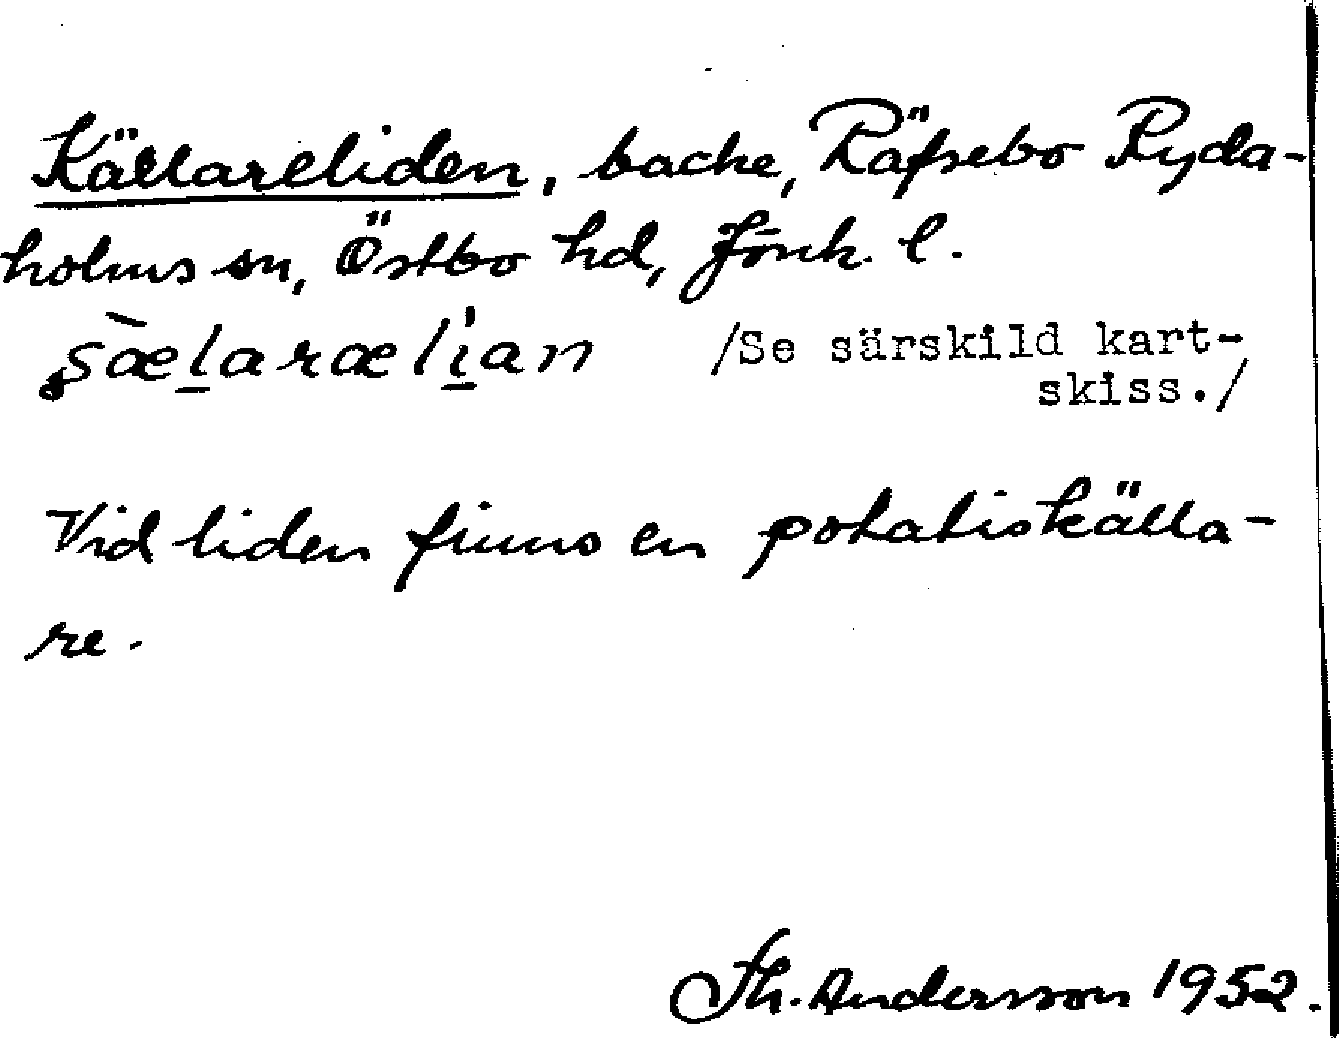 Källareliden, backe, Räfsebo Ryda-
holms sn, Östbo hd, Jönk. l.
/Se särskild kart-
skiss./
Vid liden finns en potatiskälla-
re.
Th. Andersson 1952.